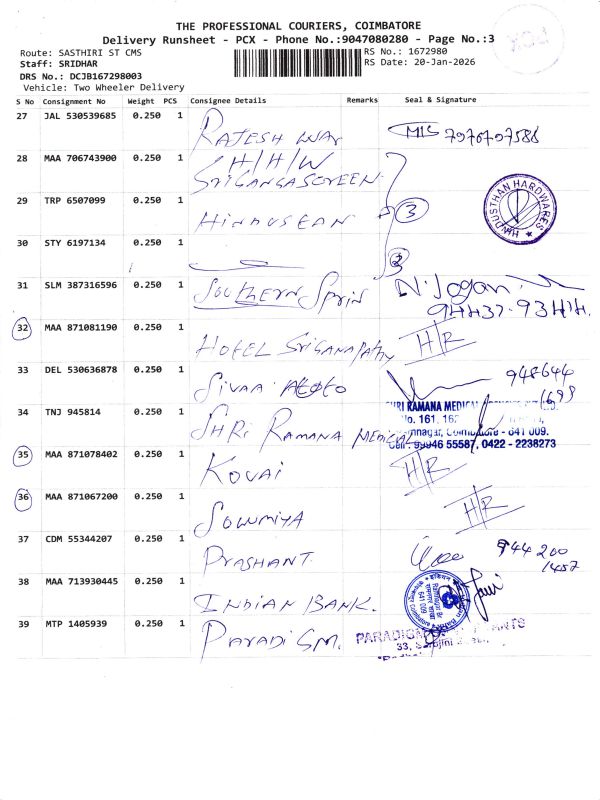 THE PROFESSIONAL COURIERS, COIMBATORE
Delivery Runsheet - PCX - Phone No.:9047080280 - Page No.:3
Route: SASTHIRI ST CMS
RS No.: 1672980
Staff: SRIDHAR
RS Date: 20-Jan-2026
DRS No.: DCJB167298003
Vehicle: Two Wheeler Delivery
S No Consignment No Weight PCS Consignee Details Remarks Seal & Signature
27 JAL 530539685 0.250 1 RAJESH
28 MAA 706743900 0.250 1 H/H/W
29 TRP 6507099 0.250 1 HINDUSTAN 3
HINDUSTHAN HARDWARES
30 STY 6197134 0.250 1
31 SLM 387316596 0.250 1 SOUTHERN Sprin
94437-93414.
32 MAA 871081190 0.250 1 HOTEL SRIGANAPATHY H/R
33 DEL 530636878 0.250 1 SIVAA
948644
34 TNJ 945814 0.250 1 SHRI RAMANA MEDICAL
SHRI RAMANA MEDICAL
No. 161,
Coimbatore - 641 009.
Cell: 99946 55587, 0422 - 2238273
35 MAA 871078402 0.250 1 KOVAI H/R
36 MAA 871067200 0.250 1 SOWMIYA H/R
37 CDM 55344207 0.250 1 PRASHANT.
944 200
1457
38 MAA 713930445 0.250 1 INDIAN BANK.
641 009
39 MTP 1405939 0.250 1 PARADIGM.
PARADIGM
33,